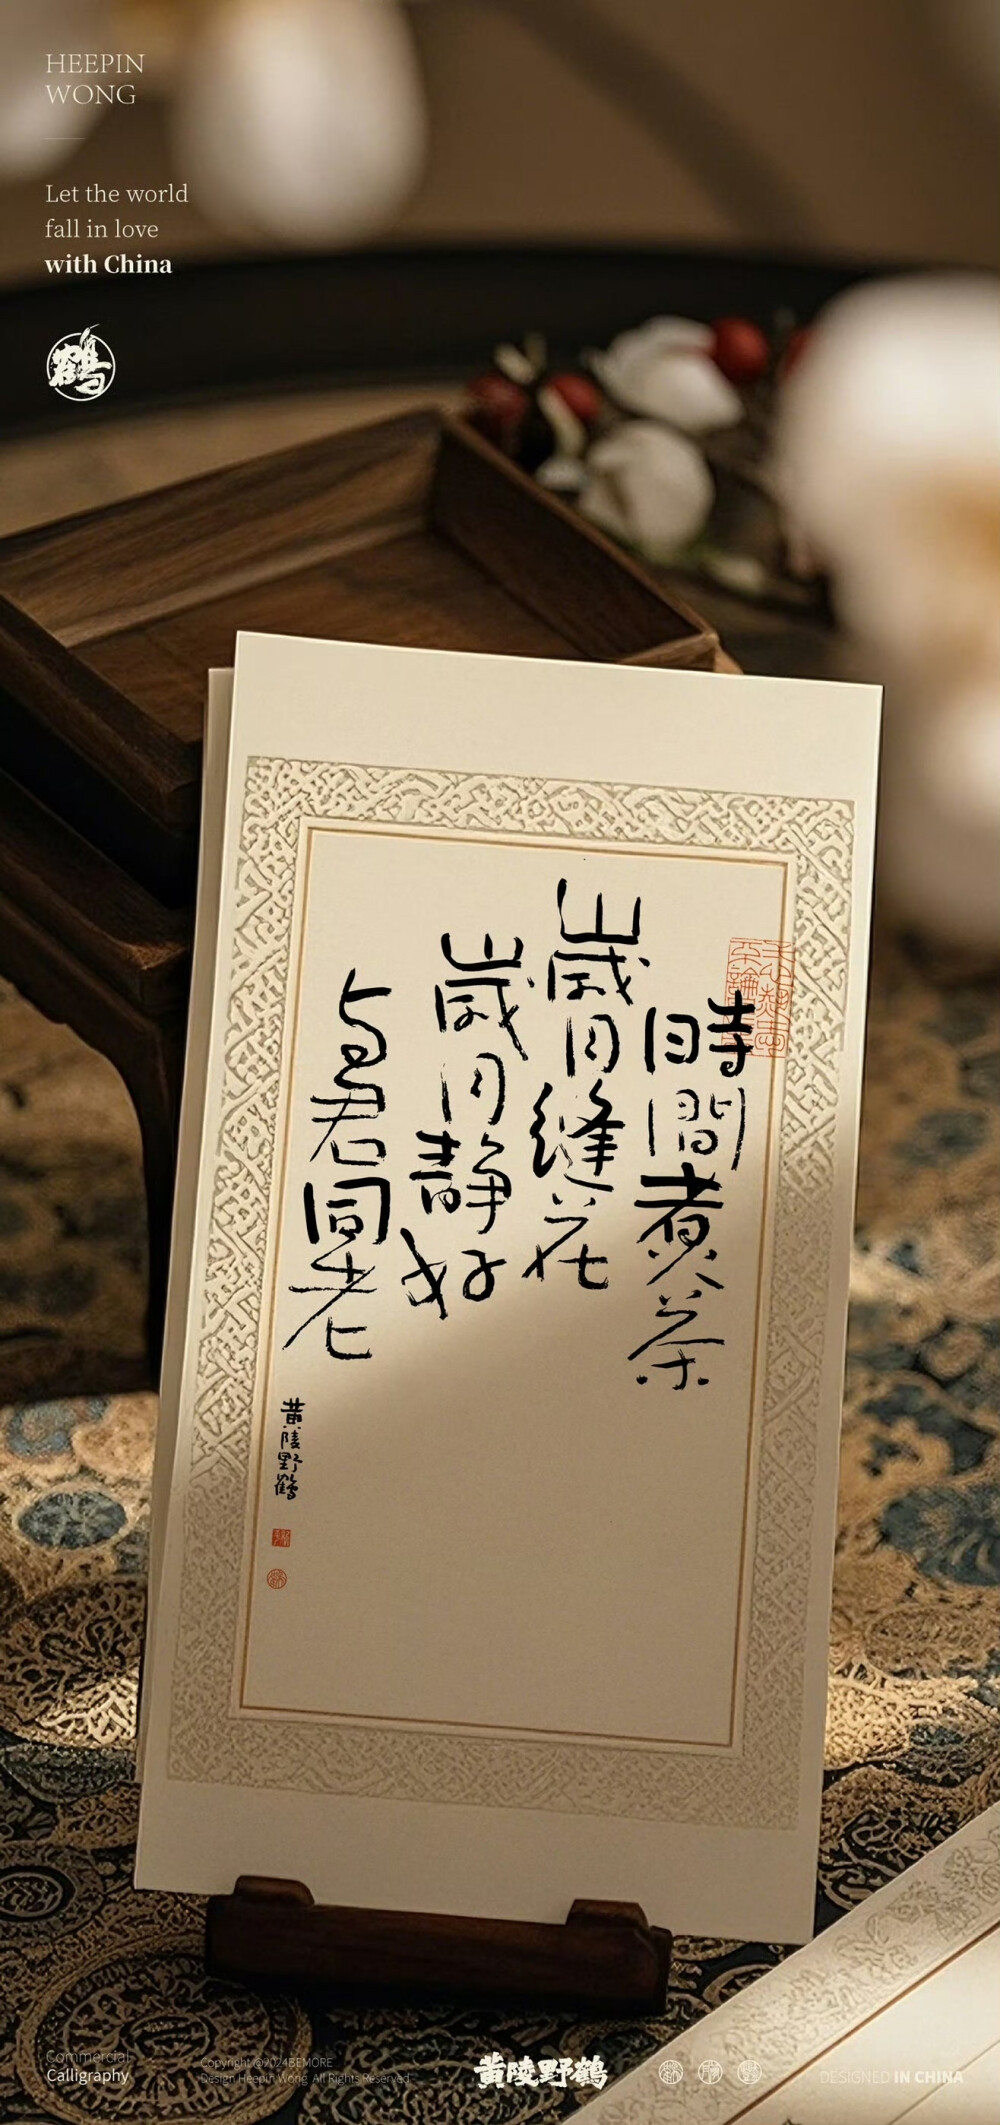 HEEPIN
WONG
Let the world
fall in love
with China
鶴
時間煮茶
歲月縫花
歲月靜好
与君同老
黄陵野鶴
Commercial
Calligraphy
Copyright @2024BEMORE
Design Heepin Wong All Rights Reserved
黄陵野鶴
DESIGNED IN CHINA